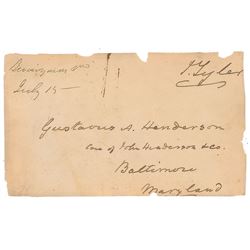 J. Tyler
July 15 —
Gustavus A. Henderson
Care of John Henderson & Co.
Baltimore
Maryland